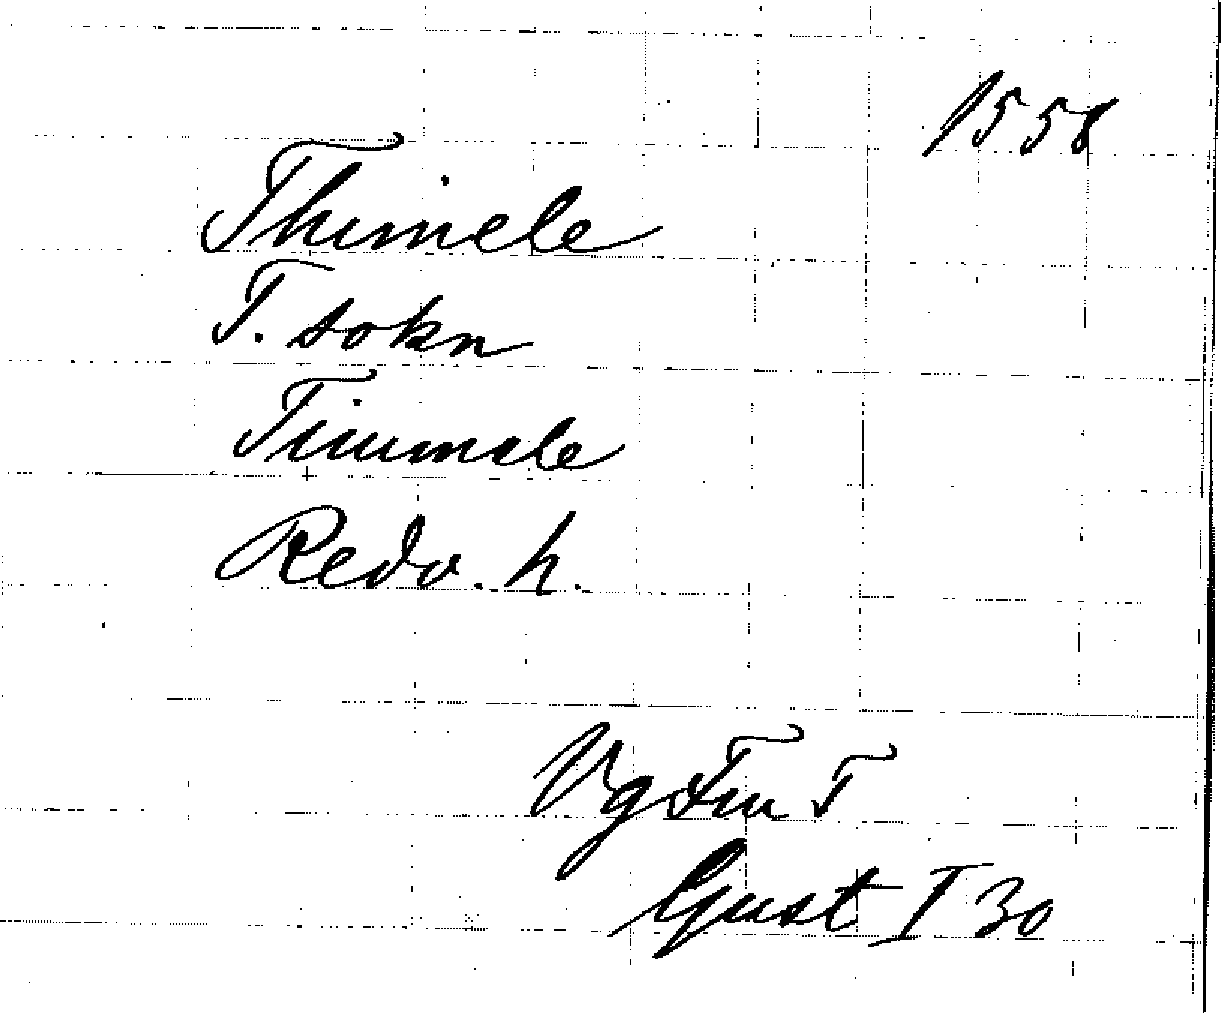 1558
Thimele
T. sokn
Timmele
Redv. h.
Vg
Gust I 30